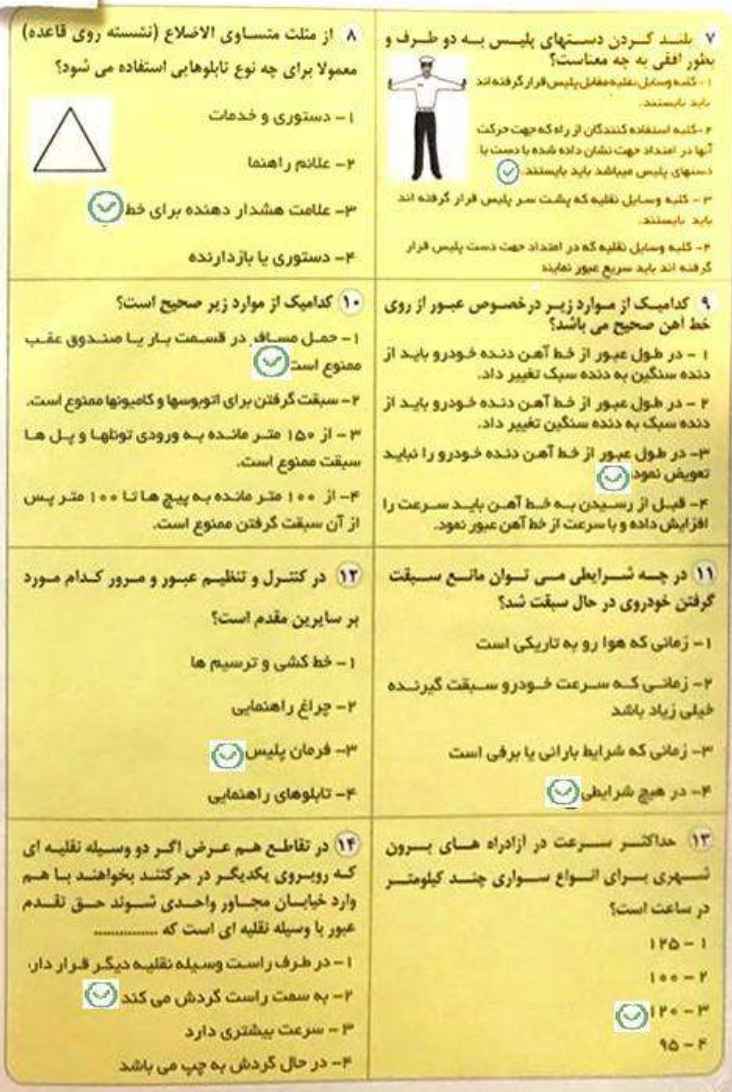 ۷ بلند کردن دستهای پلیس به دو طرف و
بطور افقی به چه معناست؟
۱- کلیه وسایل نقلیه مقابل پلیس قرار گرفته اند
باید بایستند.
۲-کلیه استفاده کنندگان از راه که جهت حرکت
آنها در امتداد جهت نشان داده شده با دست یا
دستهای پلیس میباشد باید بایستند.
۳- کلیه وسایل نقلیه که پشت سر پلیس قرار گرفته اند
باید بایستند.
۴- کلیه وسایل نقلیه که در امتداد جهت دست پلیس قرار
گرفته اند باید سریع عبور نمایند
۸ از مثلث متساوی الاضلاع (نشسته روی قاعده)
معمولا برای چه نوع تابلوهایی استفاده می شود؟
۱- دستوری و خدمات
۲- علائم راهنما
۳- علامت هشدار دهنده برای خط
۴- دستوری یا بازدارنده
۹ کدامیک از موارد زیر درخصوص عبور از روی
خط اهن صحیح می باشد؟
۱ - در طول عبور از خط آهن دنده خودرو باید از
دنده سنگین به دنده سبک تغییر داد.
۲ - در طول عبور از خط آهن دنده خودرو باید از
دنده سبک به دنده سنگین تغییر داد.
۳- در طول عبور از خط آهن دنده خودرو را نباید
تعویض نمود
۴- قبل از رسیدن به خط آهن باید سرعت را
افزایش داده و با سرعت از خط آهن عبور نمود.
۱۰ کدامیک از موارد زیر صحیح است؟
۱- حمل مسافر در قسمت بار یا صندوق عقب
ممنوع است
۲- سبقت گرفتن برای اتوبوسها و کامیونها ممنوع است.
۳- از ۱۵۰ متر مانده به ورودی تونلها و پل ها
سبقت ممنوع است.
۴- از ۱۰۰ متر مانده به پیچ ها تا ۱۰۰ متر پس
از آن سبقت گرفتن ممنوع است.
۱۱ در چه شرایطی می توان مانع سبقت
گرفتن خودروی در حال سبقت شد؟
۱- زمانی که هوا رو به تاریکی است
۲- زمانی که سرعت خودرو سبقت گیرنده
خیلی زیاد باشد
۳- زمانی که شرایط بارانی یا برفی است
۴- در هیچ شرایطی
۱۲ در کنترل و تنظیم عبور و مرور کدام مورد
بر سایرین مقدم است؟
۱- خط کشی و ترسیم ها
۲- چراغ راهنمایی
۳- فرمان پلیس
۴- تابلوهای راهنمایی
۱۳ حداکثر سرعت در ازادراه های برون
شهری برای انواع سواری چند کیلومتر
در ساعت است؟
۱ - ۱۲۵
۲ - ۱۰۰
۳ - ۱۲۰
۴ - ۹۵
۱۴ در تقاطع هم عرض اگر دو وسیله نقلیه ای
که روبروی یکدیگر در حرکتند بخواهند با هم
وارد خیابان مجاور واحدی شوند حق تقدم
عبور با وسیله نقلیه ای است که ..............
۱- در طرف راست وسیله نقلیه دیگر قرار دار،
۲- به سمت راست گردش می کند
۳- سرعت بیشتری دارد
۴- در حال گردش به چپ می باشد